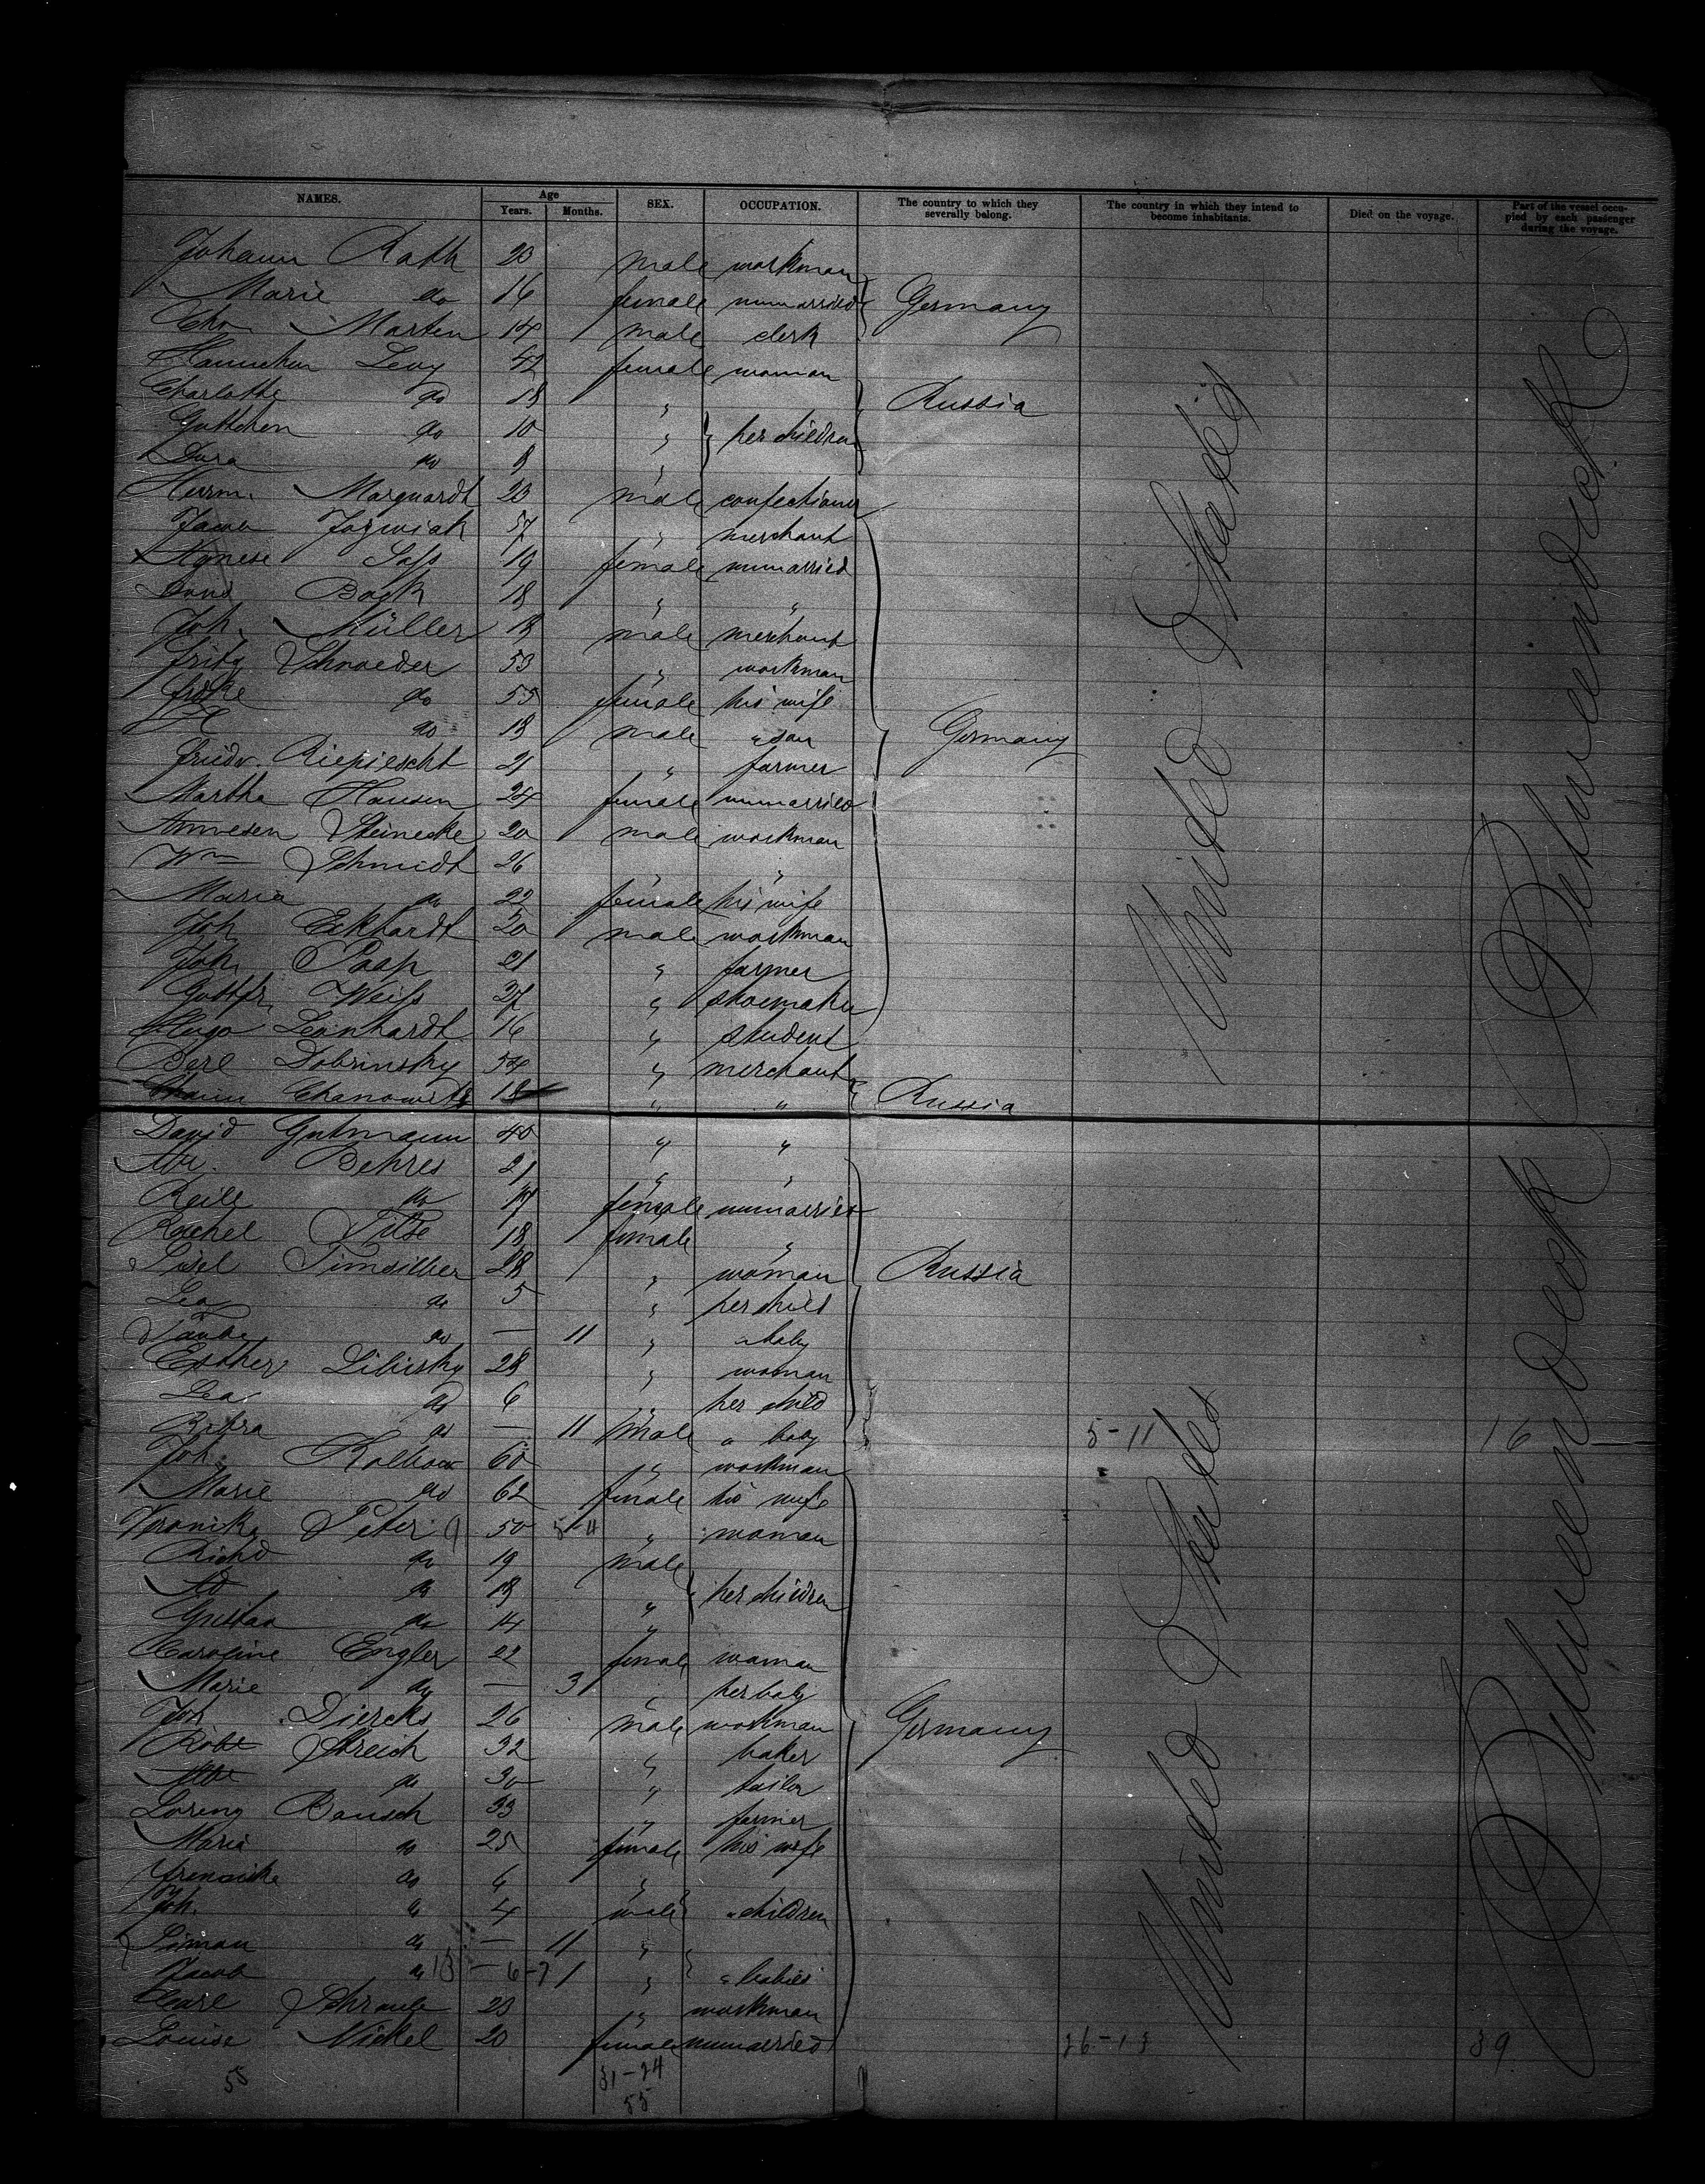 NAMES. Age Years. Months. SEX. OCCUPATION. The country to which they severally belong. The country in which they intend to become inhabitants. Died on the voyage. Part of the vessel occupied by each passenger during the voyage.
Johann Rath 23 male workman
Marie do 16 female unmarried Germany
Marten 14 male clerk
Levy 42 female woman
Charlotte do 18 " Russia
do 10 " her children
do 8 "
Herm. Marquardt 23 male confectioner
Jozwiak 57 " merchant
Agnese Sass 19 female unmarried
Back 18 " "
Joh. Müller 18 male merchant
Fritz Schroeder 53 " workman
do 55 female his wife
do 18 male " son Germany
Friedr. 21 " farmer
Martha Hansen 24 female unmarried
Steinecke 20 male workman
Wm Schmidt 26 " "
Maria do 22 female his wife
Joh. Eckhardt 20 male workman
Joh. Paap 21 " farmer
Gottfr. Weiss 37 " shoemaker
Hugo Leonhardt 16 " student
Berl Dobrinsky 54 " merchant
Chanowitz 18 " " Russia
David Gutmann 40 " "
Behres 21 " "
do 17 female unmarried
Rachel 18 female "
28 " woman Russia
Lea do 5 " her child
Taube do — 11 " " baby
Esther 28 " woman
Lea do 6 " her child
do — 11 male " baby 5-11 16
Joh. 60 " workman
Marie do 62 female his wife
Veronika Peter 9 50 5-4 " woman
Richd do 19 male
Ad do 18 " her children
Gustav do 14 "
Caroline Engler 22 female woman
Marie do — 3 " her baby
Joh. Diercks 26 male workman Germany
Robt Streich 32 " baker
do 30 " tailor
Lorenz Bausch 33 " farmer
Maria do 25 female his wife
do 6 "
Joh. do 4 male " children
Simon do — 11 "
Jacob do 13 — 6-7 1 " " babies
Carl Schraube 23 " workman
Louise Nickel 20 female unmarried 26-13 39
55 31-24
55
United States
Between deck
United States
Between deck